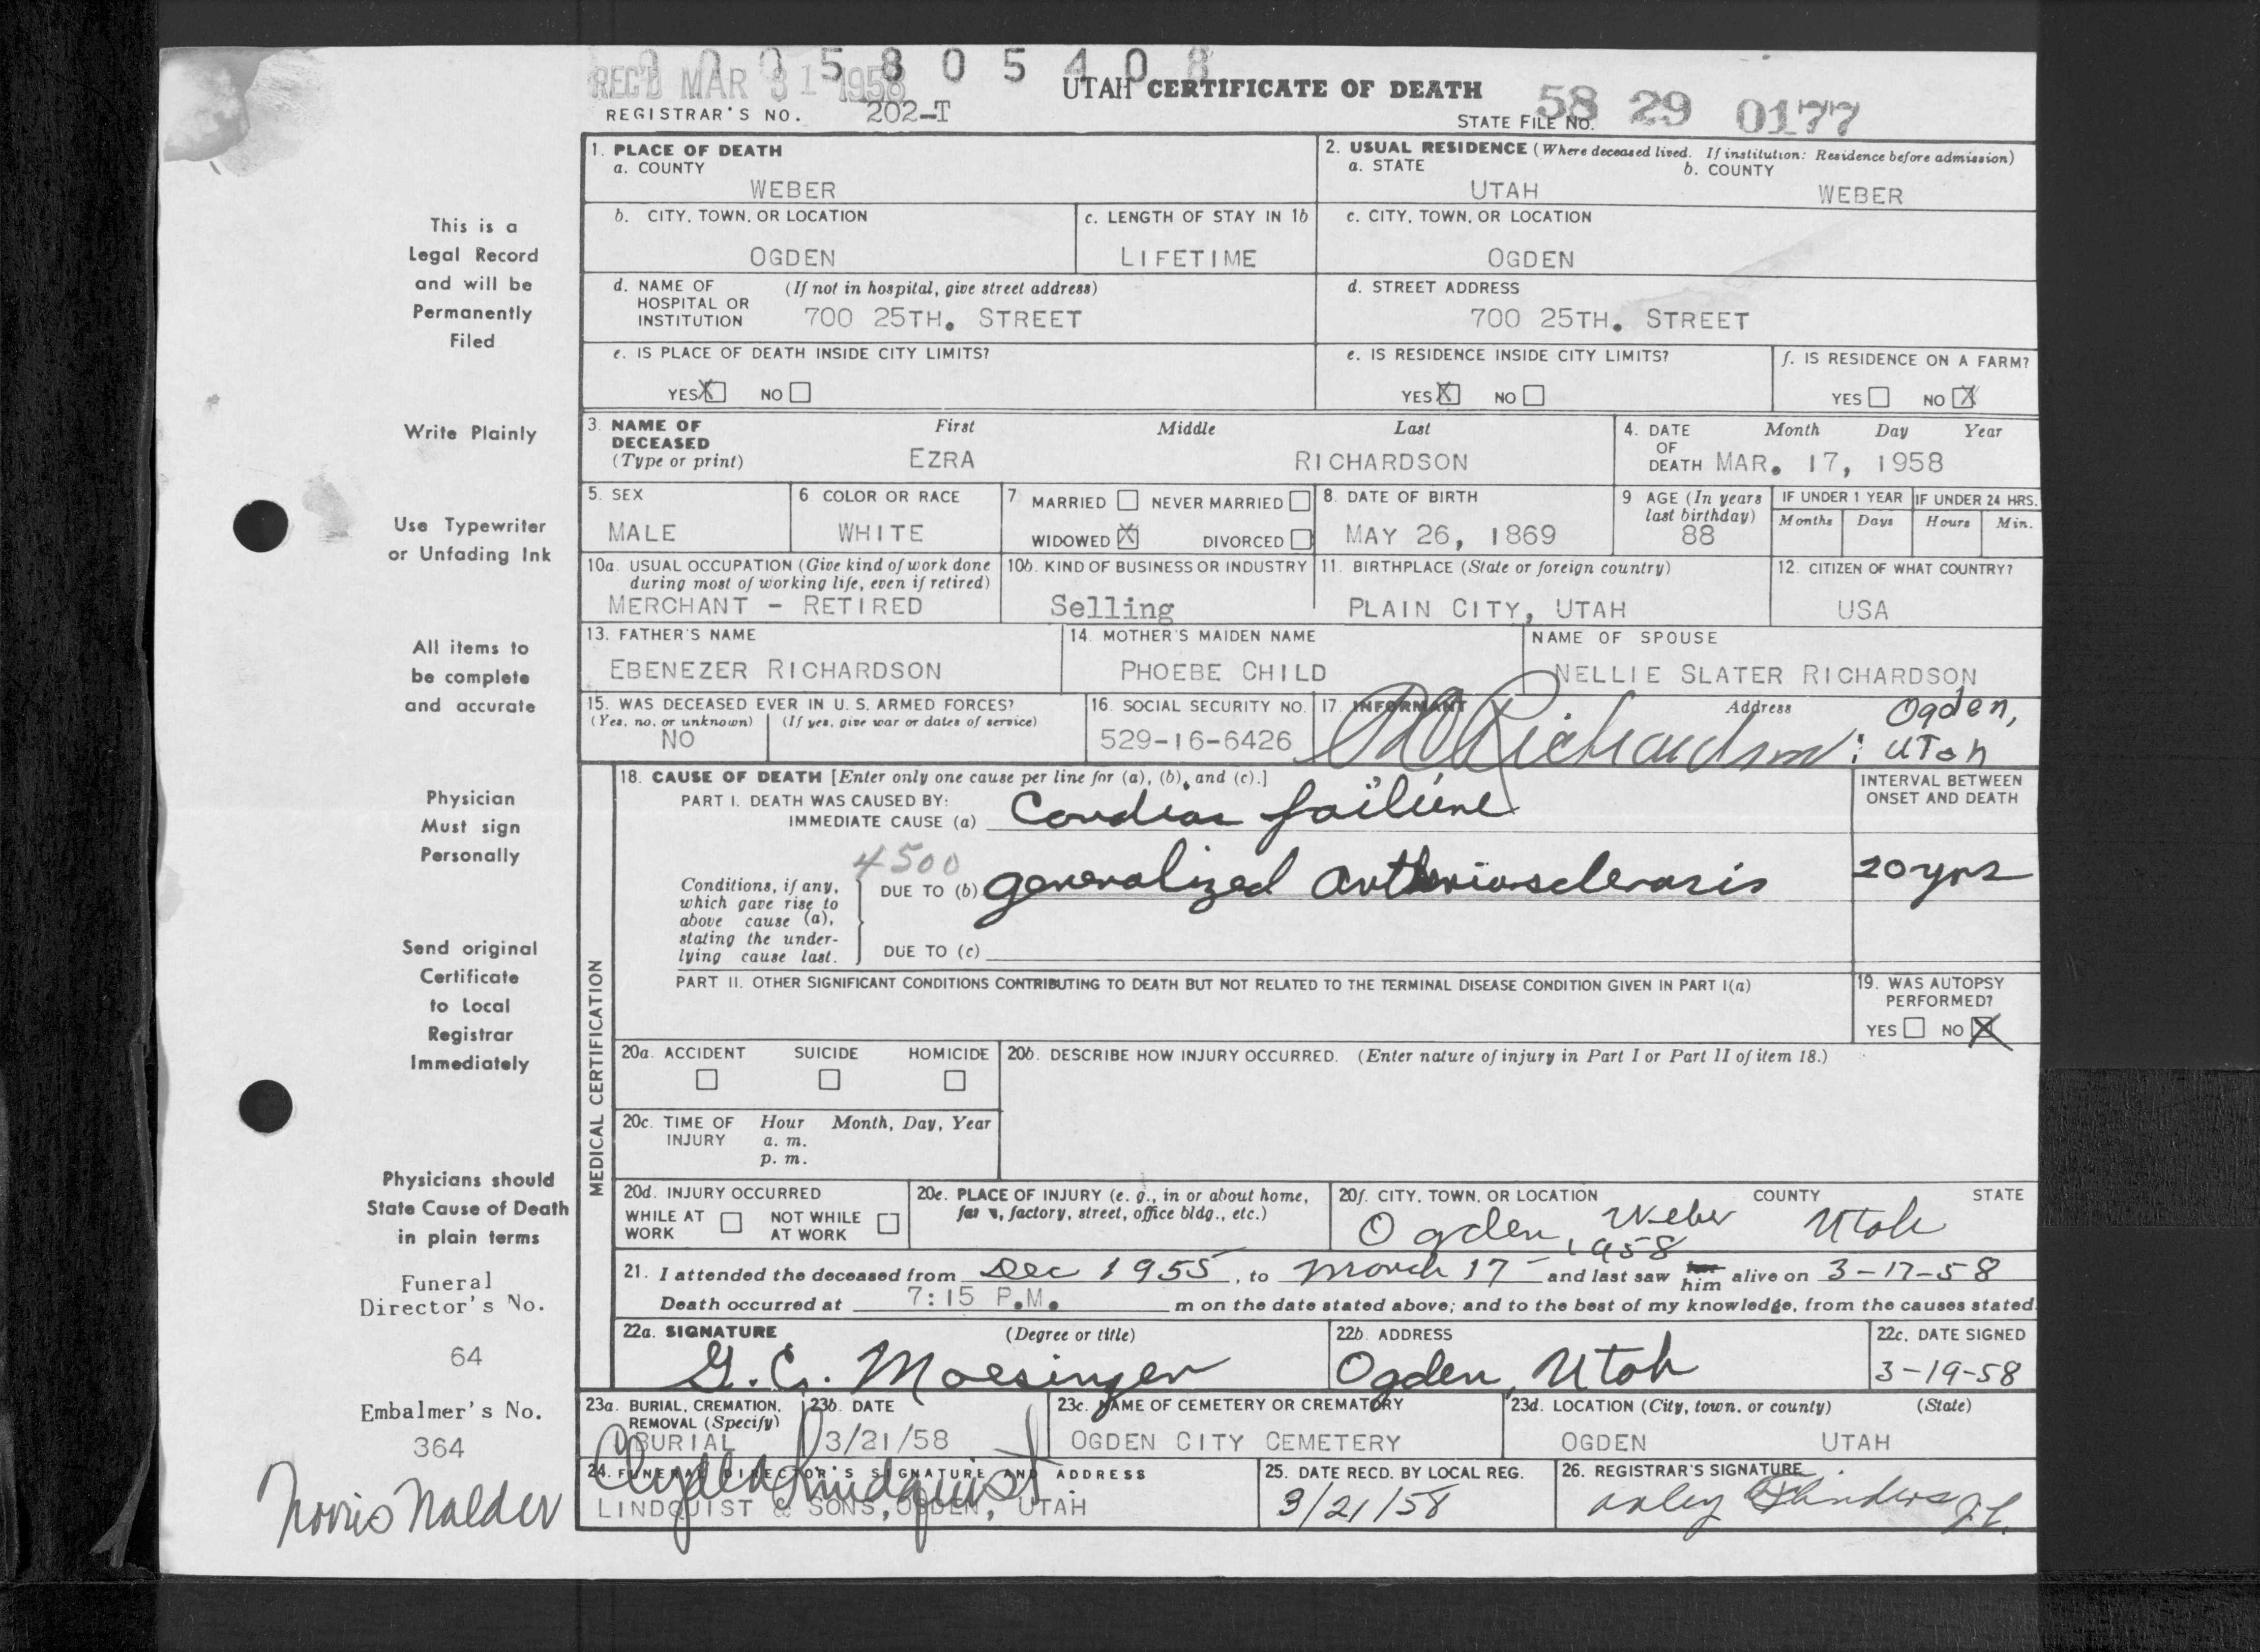 0 0 5 8 0 5 4 0 8
REC'D MAR 31 1958
UTAH CERTIFICATE OF DEATH
REGISTRAR'S NO. 202-T
STATE FILE NO. 58 29 0177
This is a
Legal Record
and will be
Permanently
Filed
Write Plainly
Use Typewriter
or Unfading Ink
All items to
be complete
and accurate
Physician
Must sign
Personally
Send original
Certificate
to Local
Registrar
Immediately
Physicians should
State Cause of Death
in plain terms
Funeral
Director's No.
64
Embalmer's No.
364
Norris Nalder
1. PLACE OF DEATH
a. COUNTY
WEBER
2. USUAL RESIDENCE (Where deceased lived. If institution: Residence before admission)
a. STATE b. COUNTY
UTAH WEBER
b. CITY, TOWN, OR LOCATION
OGDEN
c. LENGTH OF STAY IN 1b
LIFETIME
c. CITY, TOWN, OR LOCATION
OGDEN
d. NAME OF (If not in hospital, give street address)
HOSPITAL OR
INSTITUTION 700 25TH. STREET
d. STREET ADDRESS
700 25TH. STREET
e. IS PLACE OF DEATH INSIDE CITY LIMITS?
YES X NO
e. IS RESIDENCE INSIDE CITY LIMITS?
YES X NO
f. IS RESIDENCE ON A FARM?
YES NO X
3. NAME OF DECEASED
(Type or print)
First Middle Last
EZRA RICHARDSON
4. DATE OF DEATH
Month Day Year
MAR. 17, 1958
5. SEX
MALE
6. COLOR OR RACE
WHITE
7. MARRIED NEVER MARRIED
WIDOWED X DIVORCED
8. DATE OF BIRTH
MAY 26, 1869
9 AGE (In years
last birthday)
88
IF UNDER 1 YEAR IF UNDER 24 HRS.
Months Days Hours Min.
10a. USUAL OCCUPATION (Give kind of work done
during most of working life, even if retired)
MERCHANT - RETIRED
10b. KIND OF BUSINESS OR INDUSTRY
Selling
11. BIRTHPLACE (State or foreign country)
PLAIN CITY, UTAH
12. CITIZEN OF WHAT COUNTRY?
USA
13. FATHER'S NAME
EBENEZER RICHARDSON
14. MOTHER'S MAIDEN NAME
PHOEBE CHILD
NAME OF SPOUSE
NELLIE SLATER RICHARDSON
15. WAS DECEASED EVER IN U. S. ARMED FORCES?
(Yes, no, or unknown) (If yes, give war or dates of service)
NO
16. SOCIAL SECURITY NO.
529-16-6426
17. INFORMANT Address
Richardson; Ogden,
Utah
MEDICAL CERTIFICATION
18. CAUSE OF DEATH [Enter only one cause per line for (a), (b), and (c).]
PART I. DEATH WAS CAUSED BY:
IMMEDIATE CAUSE (a) Cardiac failure
INTERVAL BETWEEN
ONSET AND DEATH
4500
Conditions, if any,
which gave rise to
above cause (a),
stating the under-
lying cause last.
DUE TO (b) generalized artheriosclerosis 20 yrs
DUE TO (c)
PART II. OTHER SIGNIFICANT CONDITIONS CONTRIBUTING TO DEATH BUT NOT RELATED TO THE TERMINAL DISEASE CONDITION GIVEN IN PART I(a)
19. WAS AUTOPSY
PERFORMED?
YES NO X
20a. ACCIDENT SUICIDE HOMICIDE
20b. DESCRIBE HOW INJURY OCCURRED. (Enter nature of injury in Part I or Part II of item 18.)
20c. TIME OF INJURY
Hour Month, Day, Year
a. m.
p. m.
20d. INJURY OCCURRED
WHILE AT WORK NOT WHILE AT WORK
20e. PLACE OF INJURY (e. g., in or about home,
farm, factory, street, office bldg., etc.)
20f. CITY, TOWN, OR LOCATION COUNTY STATE
Ogden, Weber Utah
21. I attended the deceased from Dec 1955, to March 17 1958 and last saw her him alive on 3-17-58
Death occurred at 7:15 P.M. m on the date stated above; and to the best of my knowledge, from the causes stated.
22a. SIGNATURE (Degree or title)
G. C. Moesinger
22b. ADDRESS
Ogden, Utah
22c. DATE SIGNED
3-19-58
23a. BURIAL, CREMATION,
REMOVAL (Specify)
BURIAL
23b. DATE
3/21/58
23c. NAME OF CEMETERY OR CREMATORY
OGDEN CITY CEMETERY
23d. LOCATION (City, town, or county) (State)
OGDEN UTAH
24. FUNERAL DIRECTOR'S SIGNATURE AND ADDRESS
Clyde Lindquist
LINDQUIST & SONS, OGDEN, UTAH
25. DATE RECD. BY LOCAL REG.
3/21/58
26. REGISTRAR'S SIGNATURE